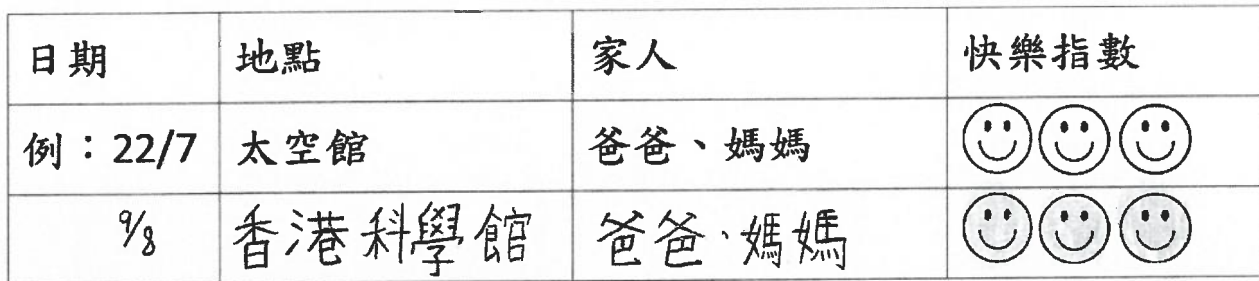 日期 地點 家人 快樂指數
例：22/7 太空館 爸爸、媽媽
9/8 香港科學館 爸爸、媽媽